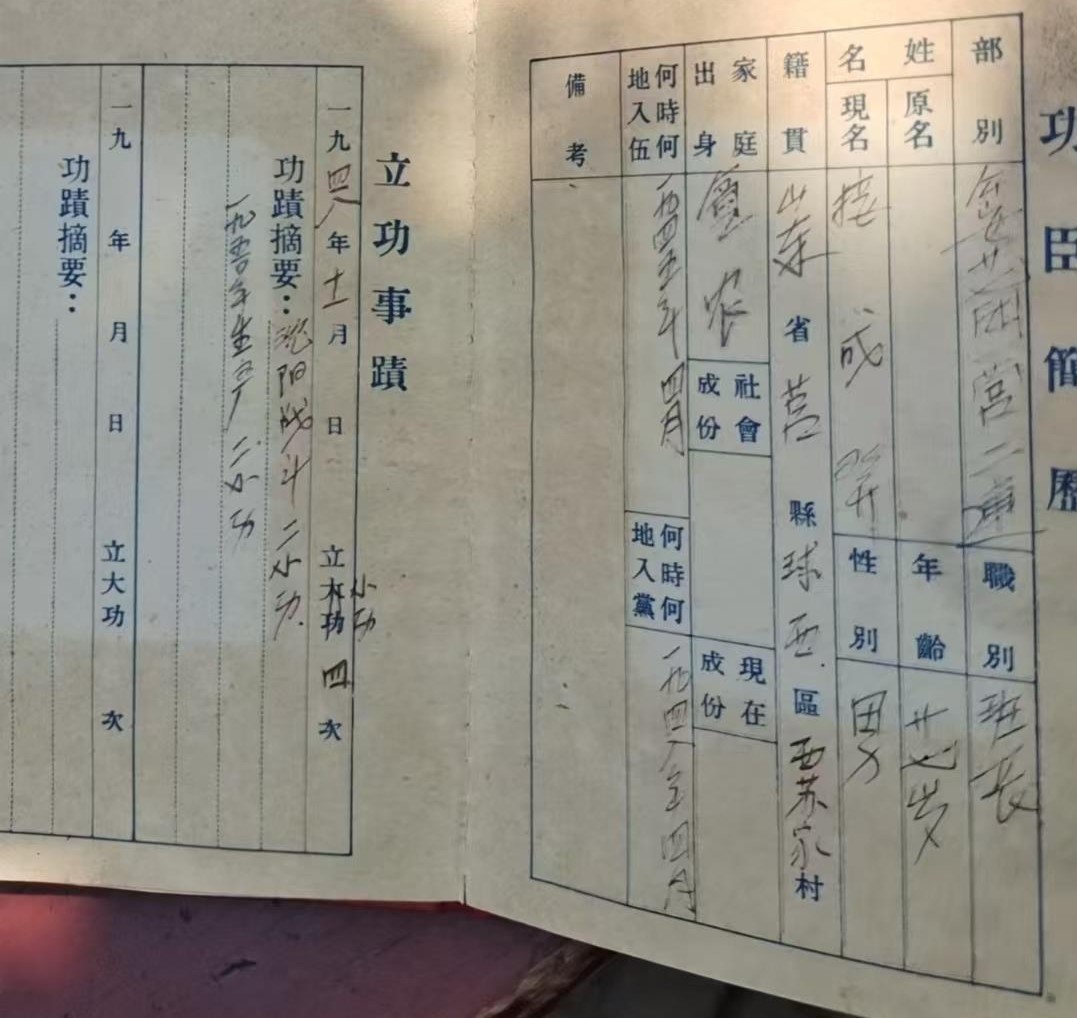 功臣簡歷
部別 二連
職別 班長
姓名 原名
年齡 廿 岁
現名 成
性別 男
籍貫 山东省莒縣球西區西苏家村
家庭出身 农
社會成份
現在成份
何時何地入伍 一九四五年四月
何時何地入黨 一九四八年四月
備考
立功事蹟
一九四八年十一月 日 立大功四次
小功
功蹟摘要：沈阳战斗二小功.
一九五〇年生产二小功
一九 年 月 日 立大功 次
功蹟摘要：